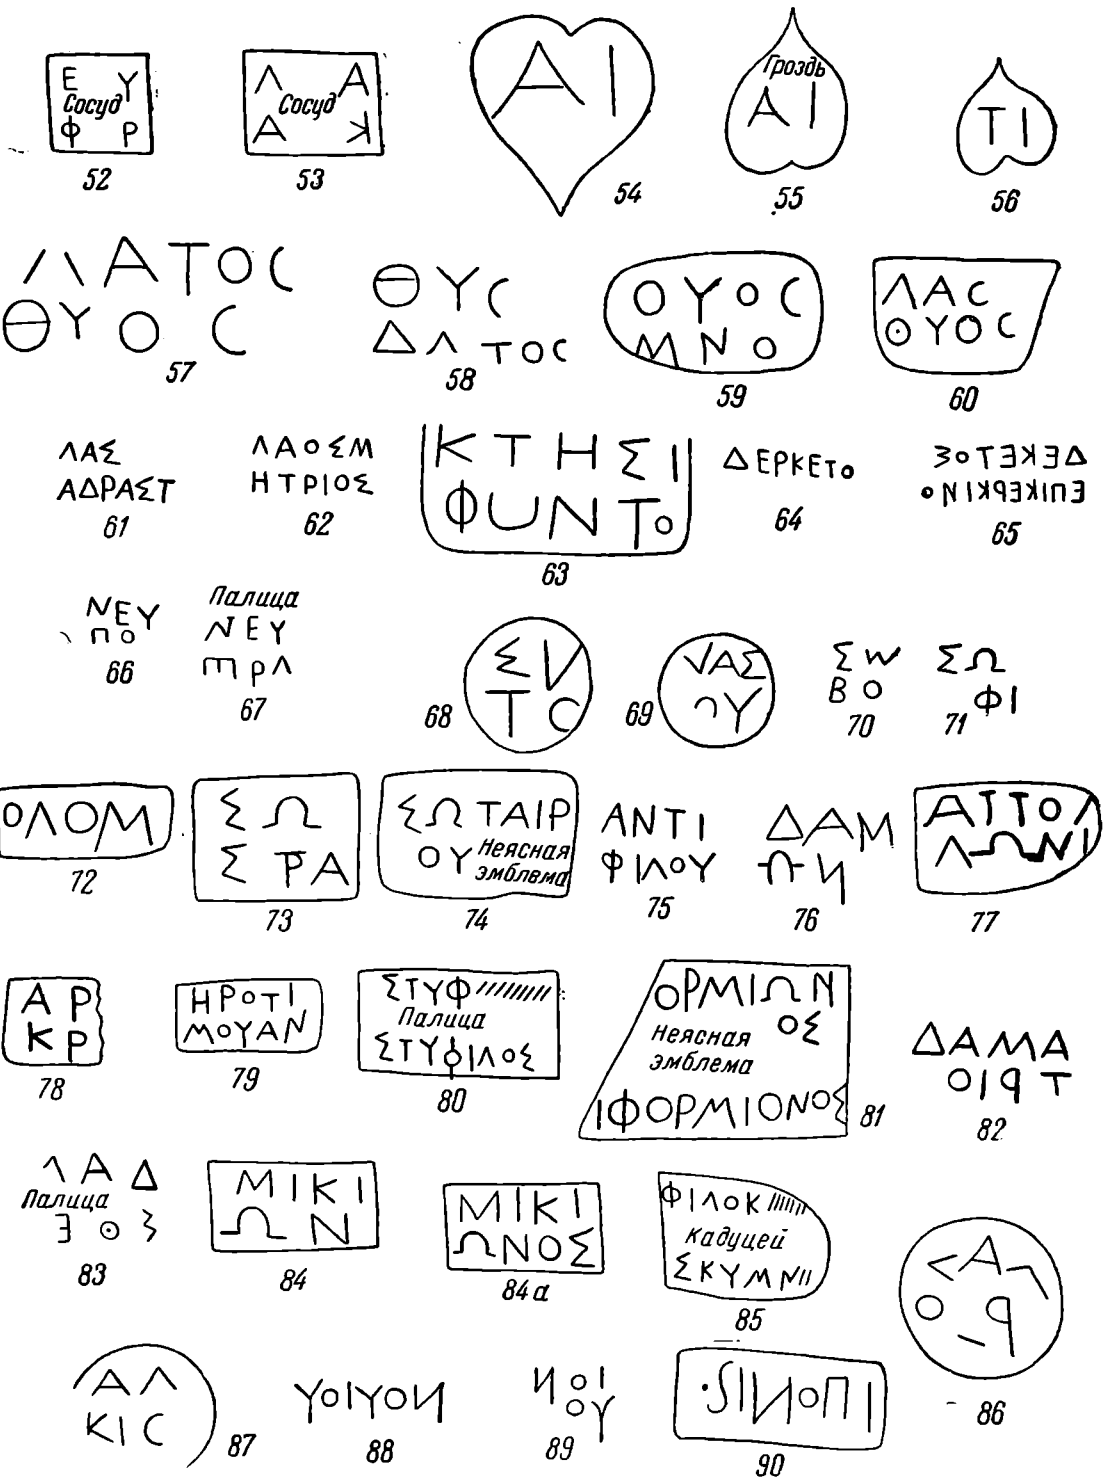 Ε Υ
Сосуд
Φ Ρ
52
Λ Α
Сосуд
Α К
53
ΑΙ
54
Гроздь
ΑΙ
55
ΤΙ
56
ΛΑΤΟС
ΘΥΟС
57
ΘΥС
ΔΛΤΟС
58
ΟΥΟС
ΜΝΟ
59
ΛΑС
ΘΥΟС
60
ΛΑΣ
ΑΔΡΑΣΤ
61
ΛΑΟΣΜ
ΗΤΡΙΟΣ
62
ΚΤΗΣΙ
ΦѠΝΤΟ
63
ΔΕΡΚΕΤΟ
64
ΔΕΚΕΤΟΣ
ΕΠΙΚΕΡΚΙΝΟ
65
ΝΕΥ
ΠΟ
66
Палица
ΝΕΥ
ΜΡΛ
67
ΣΝ
ΤС
68
ΛΑΣ
ΟΥ
69
ΣW
ΒΟ
70
ΣΩ
ΦΙ
71
ΟΛΟΜ
72
ΣΩ
ΣΤΡΑ
73
ΣΩΤΑΙΡ
ΟΥ Неясная
эмблема
74
ΑΝΤΙ
ΦΙΛΟΥ
75
ΔΑΜ
ΩΝ
76
ΑΠΟΛ
ΛΩΝΙ
77
ΑΡ
ΚΡ
78
ΗΡΟΤΙ
ΜΟΥΑΝ
79
ΣΤΥΦ/////////
Палица
ΣΤΥΦΙΛΟΣ
80
ΟΡΜΙΩΝ
ΟΣ
Неясная
эмблема
ΙΦΟΡΜΙΟΝΟΣ
81
ΔΑΜΑ
ΟΙΡΤ
82
ΛΑΔ
Палица
Ε Θ Σ
83
ΜΙΚΙ
ΩΝ
84
ΜΙΚΙ
ΩΝΟΣ
84а
ΦΙΛΟΚ//////
Кадуцей
ΣΚΥΜΝ//
85
<Α
Ο Ρ
86
ΑΛ
ΚΙС
87
ΥΟΙΥΟΝ
88
ΝΟΙ
ΟΥ
89
ΣΙΝΟΠΙ
90